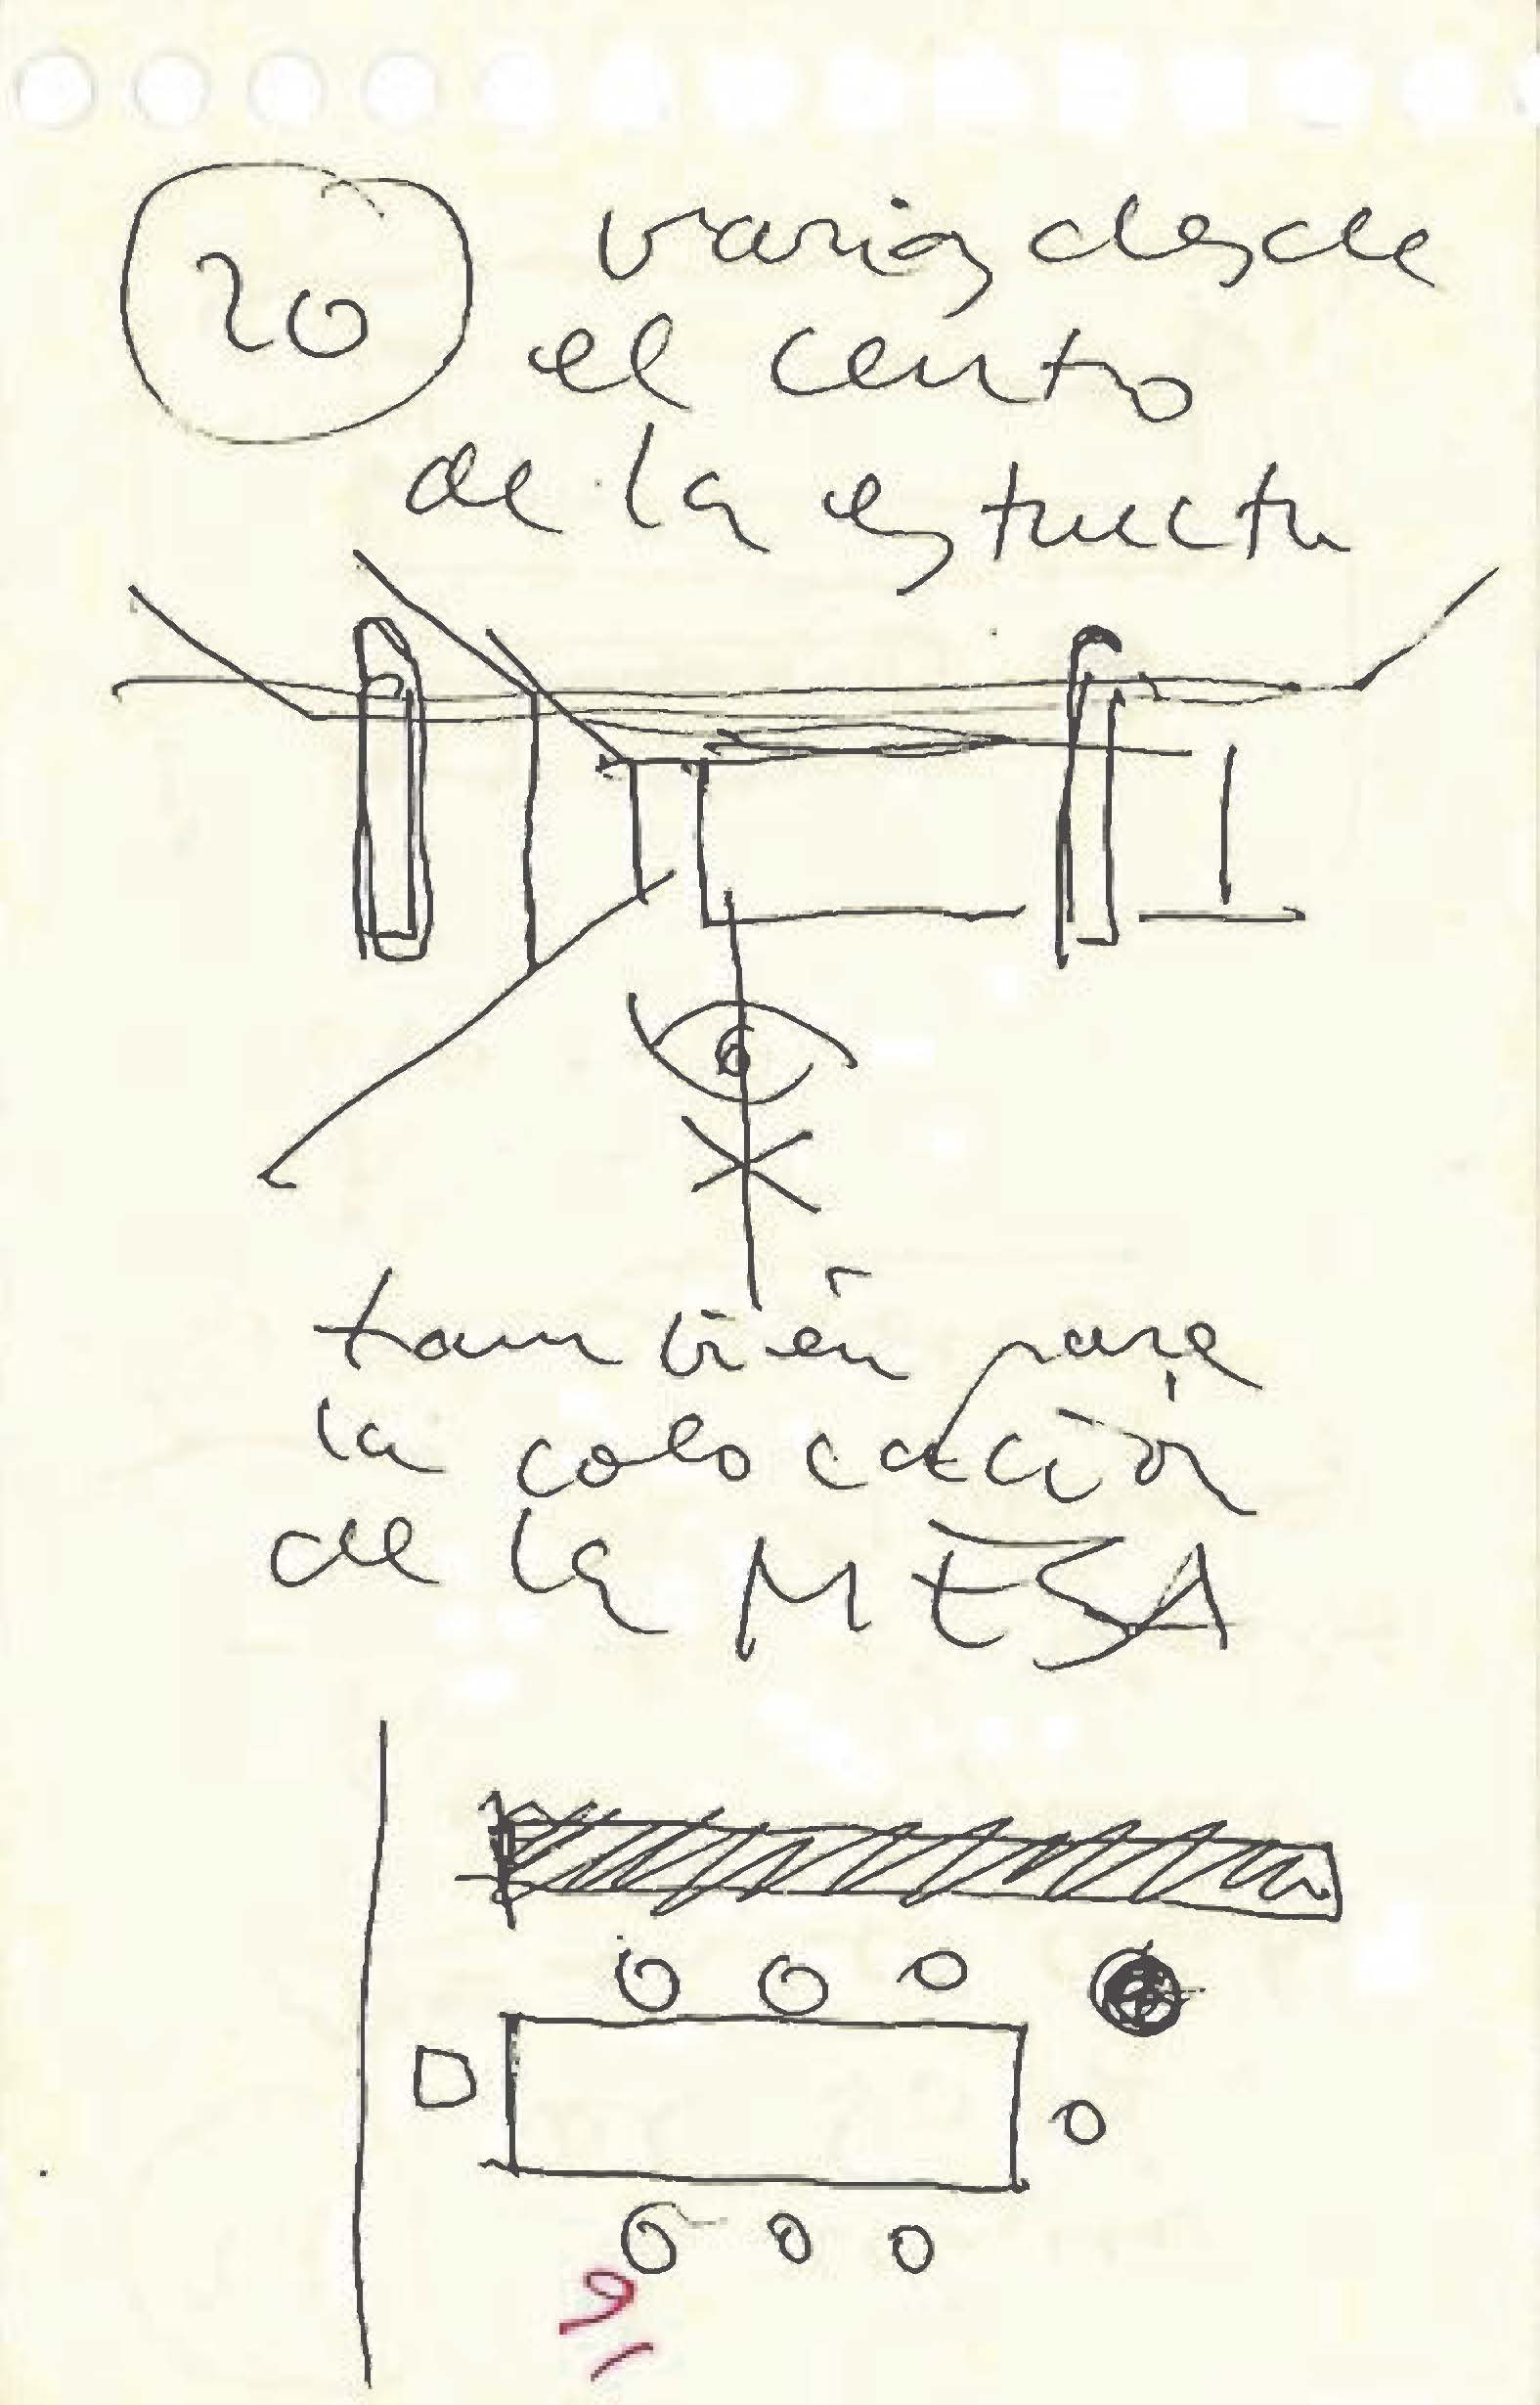 20
varias desde
el centro
de la estructu
también para
la colocación
de la MESA